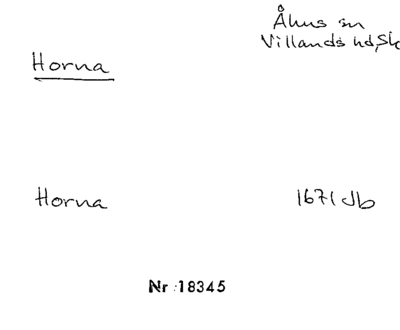 Åhus sn
Villands hd, Sk
Horna
Horna 1671 Jb
Nr 18345